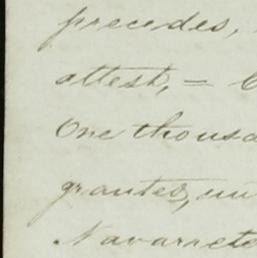 precedes,
attest, —
One thousa
grantes, un
Navarrete